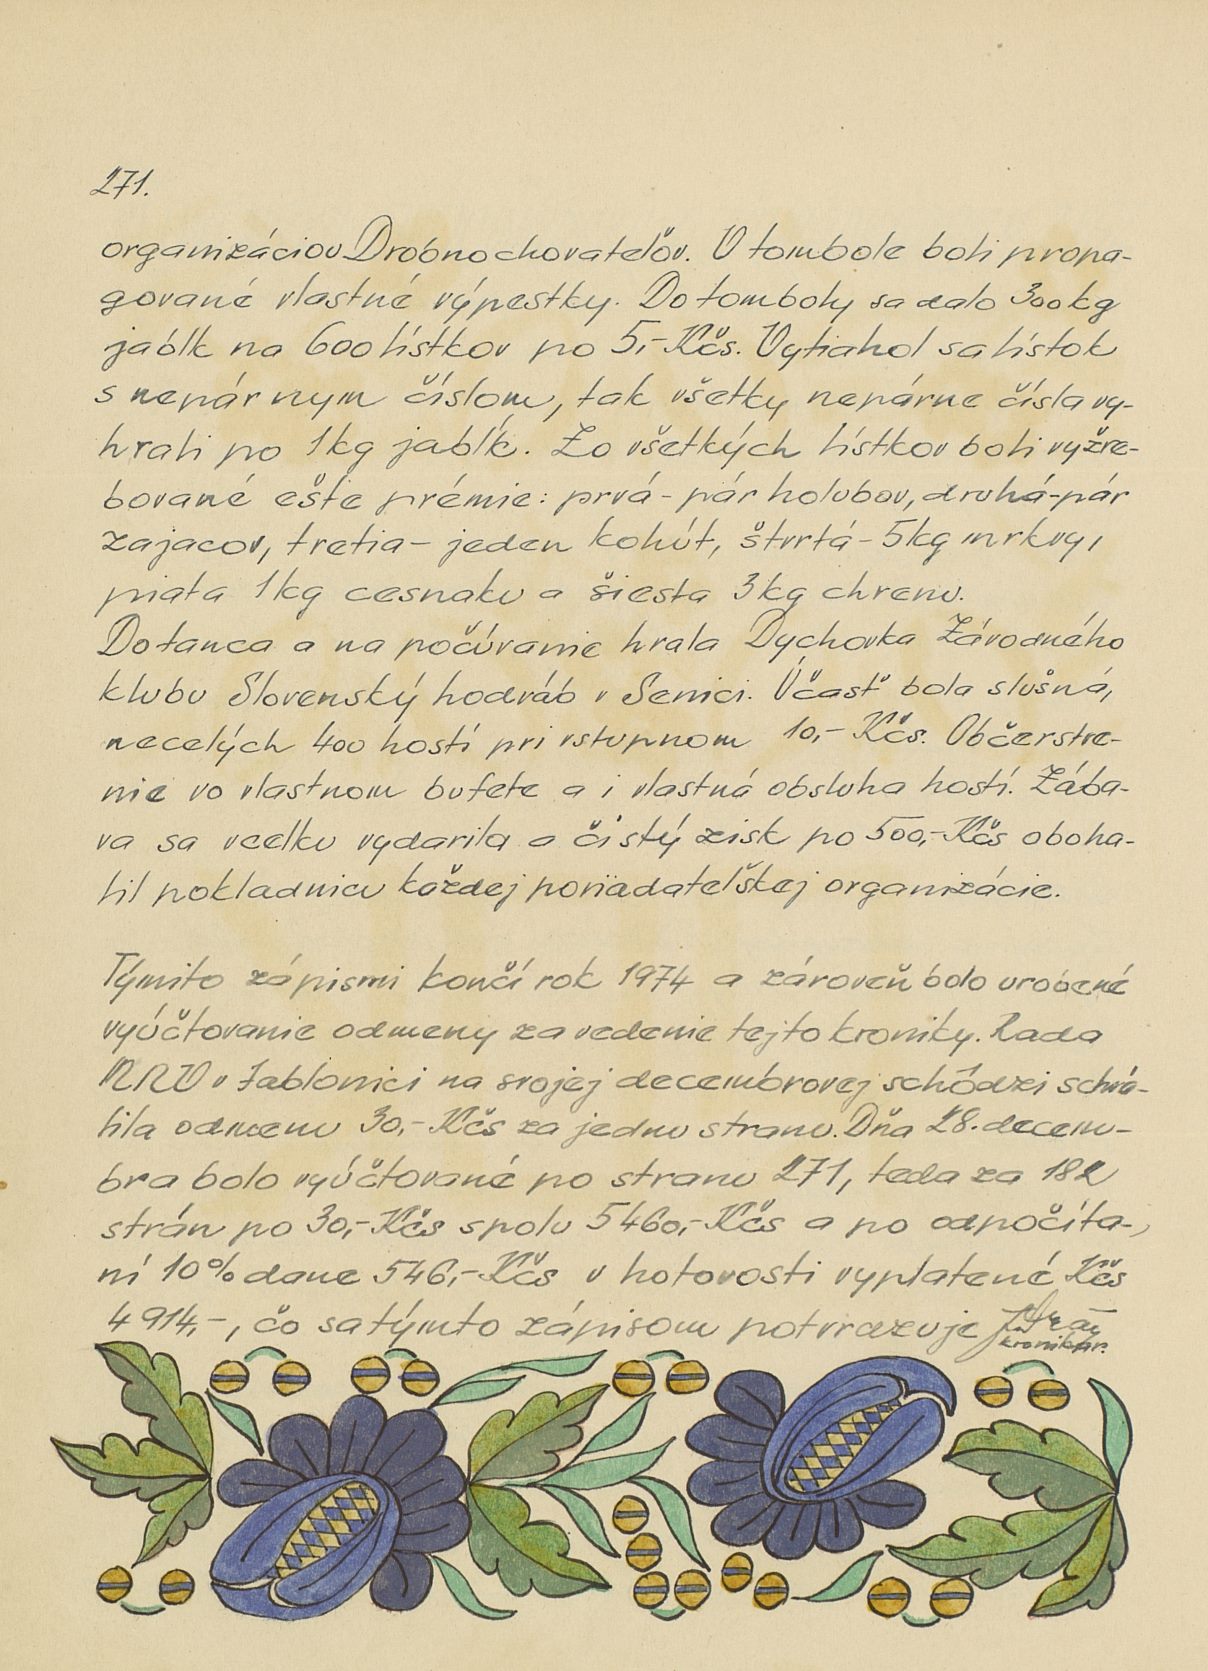 271.
organizáciou Drobnochovateľov. V tombole boli propa-
gované vlastné výpestky. Do tomboly sa dalo 300 kg
jabĺk na 600 lístkov po 5,- Kčs. Vytiahol sa lístok
s nepárnym číslom, tak všetky nepárne čísla vy-
hrali po 1 kg jabĺk. Zo všetkých lístkov boli vyžre-
bované ešte prémie: prvá - pár holubov, druhá - pár
zajacov, tretia - jeden kohút, štvrtá - 5 kg mrkvy,
piata 1 kg cesnaku a šiesta 3 kg chrenu.
Do tanca a na počúvanie hrala Dychovka Závodného
klubu Slovenský hodváb v Senici. Účasť bola slušná,
necelých 400 hostí pri vstupnom 10,- Kčs. Občerstve-
nie vo vlastnom bufete a i vlastná obsluha hostí. Zába-
va sa vcelku vydarila a čistý zisk po 500,- Kčs oboha-
til pokladnicu každej poriadateľskej organizácie.
Týmito zápismi končí rok 1974 a zároveň bolo urobené
vyúčtovanie odmeny za vedenie tejto kroniky. Rada
MNV v Jablonici na svojej decembrovej schôdzi schvá-
lila odmenu 30,- Kčs za jednu stranu. Dňa 28. decem-
bra bolo vyúčtované po stranu 271, teda za 182
strán po 30,- Kčs spolu 5460,- Kčs a po odpočíta-
ní 10% dane 546,- Kčs v hotovosti vyplatené Kčs
4914,-, čo sa týmto zápisom potvrdzuje
kronikár.